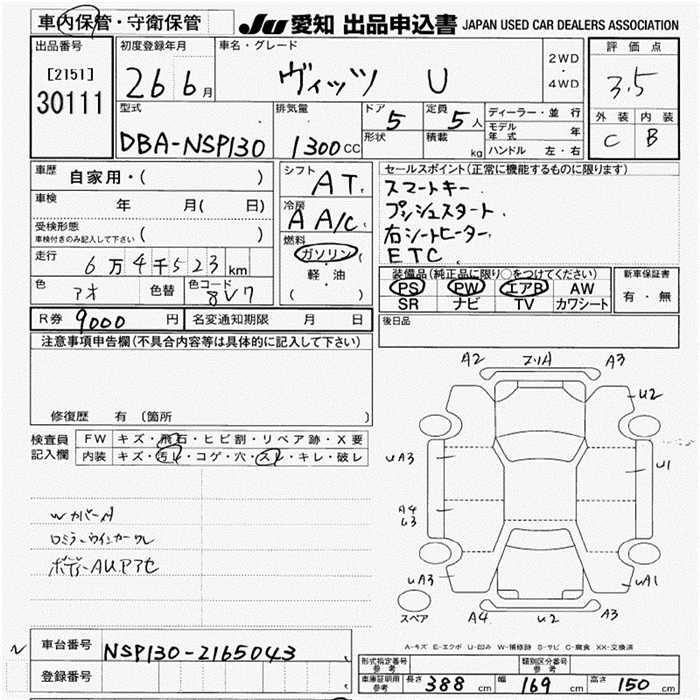 車内保管・守衛保管
JU 愛知 出品申込書 JAPAN USED CAR DEALERS ASSOCIATION
出品番号
[2151]
30111
初度登録年月
26 6月
車名・グレード
ヴィッツ U
2WD
・
4WD
評価点
3.5
外装 内装
C B
型式
DBA-NSP130
排気量
1300CC
ドア 5
形状
定員 5人
積載 kg
ディーラー・並行
モデル年式 年
ハンドル 左・右
車歴
自家用・( )
車検 年 月( 日)
受検形態
車検付きのみ記入して下さい ( )
走行
6万4千523km
色 アオ 色替 色コード 8V7
シフト
AT
冷房
AA/C
燃料
ガソリン
軽・油
( )
セールスポイント(正常に機能するものに限ります)
スマートキー.
プッシュスタート.
右シートヒーター.
ETC.
装備品(純正品に限り○をつけてください)
PS PW エアB AW
SR ナビ TV カワシート
新車保証書
有・無
R券 9000円 名変通知期限 月 日
後日品
注意事項申告欄(不具合内容等は具体的に記入して下さい)
修復歴 有 (箇所 )
検査員記入欄
FW キズ・飛石・ヒビ割・リペア跡・X要
内装 キズ・汚レ・コゲ・穴・スレ・キレ・破レ
WカバーA
ロミラーウインカーワレ
ボディーAU.Pアセ
A2 フリA A3
U2
UA3
U1
A4
U3
UA3
UA1
スペア
A4 U2 A3
A-キズ E-エクボ U-凹み W-補修跡 S-サビ C-腐食 XX-交換済
N
車台番号 NSP130-2165043
登録番号
形式指定番号
参考
類別区分番号
参考
車庫証明用
参考
長さ 388cm 幅 169cm 高さ 150cm